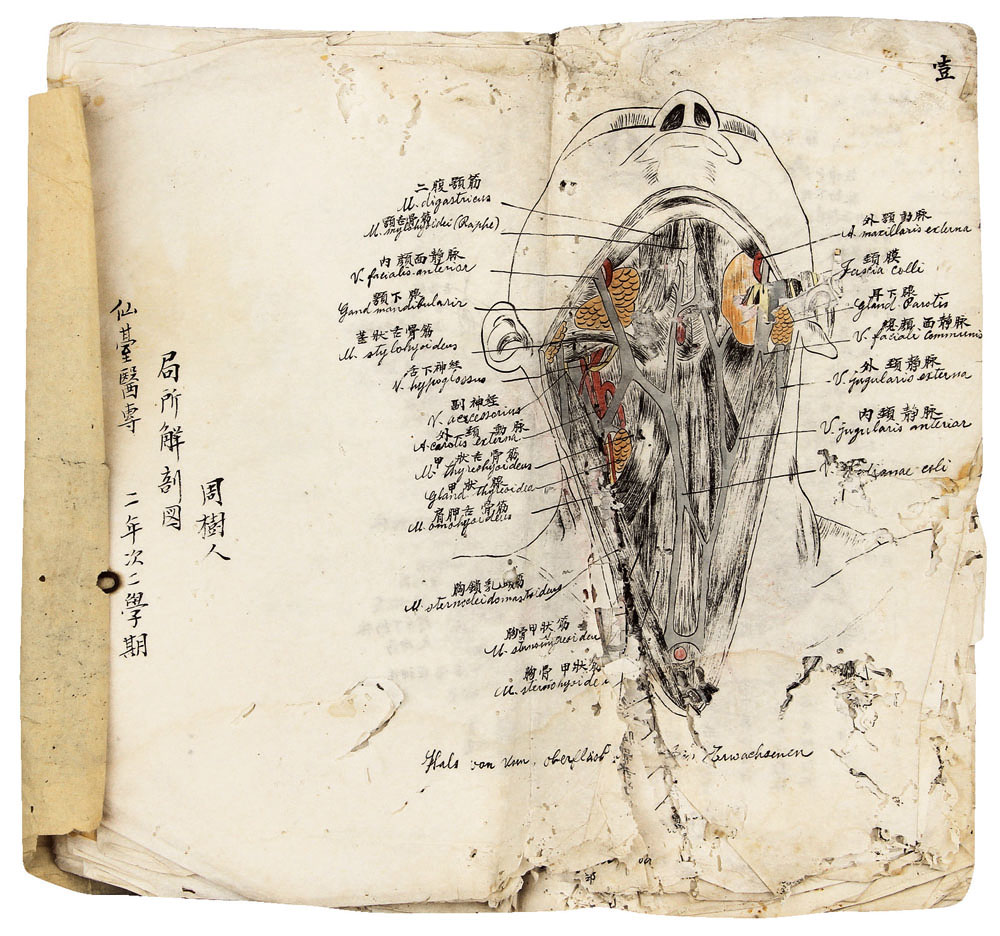 壹
仙臺醫專 二年次二學期
局所解剖図
周樹人
二腹顎筋
M. digastricus
顎舌骨筋
M. mylohyoidei (Raphe)
内顔面静脉
V. facialis anterior
顎下腺
Gland mandibularis
茎狀舌骨筋
M. stylohyoideus
舌下神経
N. hypoglossus
副神経
N. accessorius
外頚動脉
A. carotis externa
甲狀舌骨筋
M. thyreohyoideus
甲狀腺
Gland thyreoidea
肩胛舌骨筋
M. omohyoideus
胸鎖乳
M. sternocleidomastoideus
胸骨甲狀筋
胸骨甲狀筋
M. sternohyoide
外顎動脉
A. maxillaris externa
頚膜
Fascia colli
耳下腺
Gland. Parotis
総顔面静脉
V. faciali communis
外頚静脉
V. jugularis externa
内頚静脉
V. jugularis anterior
V. dianae coli
Hals von
Erwachsenen